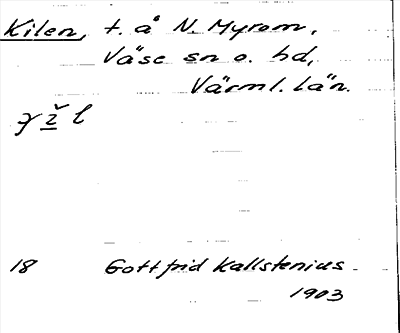 Kilen, t. å N. Myrom,
Väse sn o. hd,
Värml. län.
18 Gottfrid Kallstenius
1903